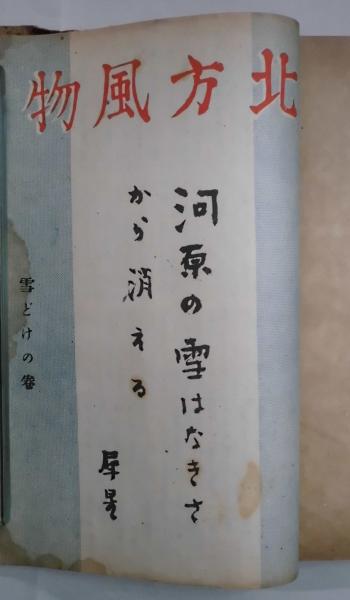 北方風物
河原の雪はなきさ
から消える
犀星
雪どけの巻